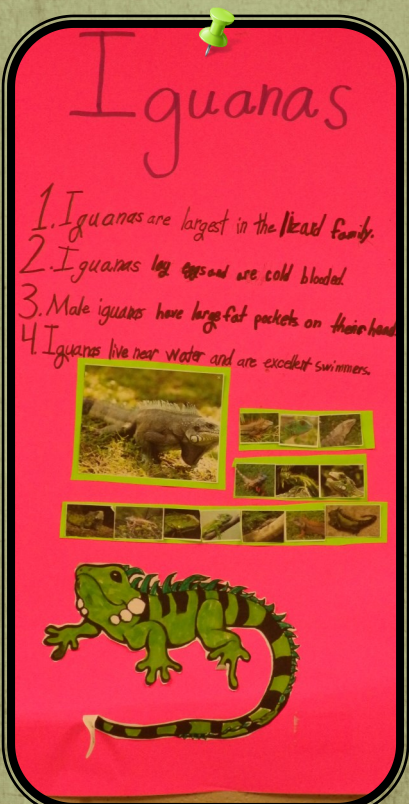 Iguanas
1. Iguanas are largest in the lizard family.
2. Iguanas lay eggs and are cold blooded.
3. Male iguanas have large fat pockets on their head.
4. Iguanas live near water and are excellent swimmers.